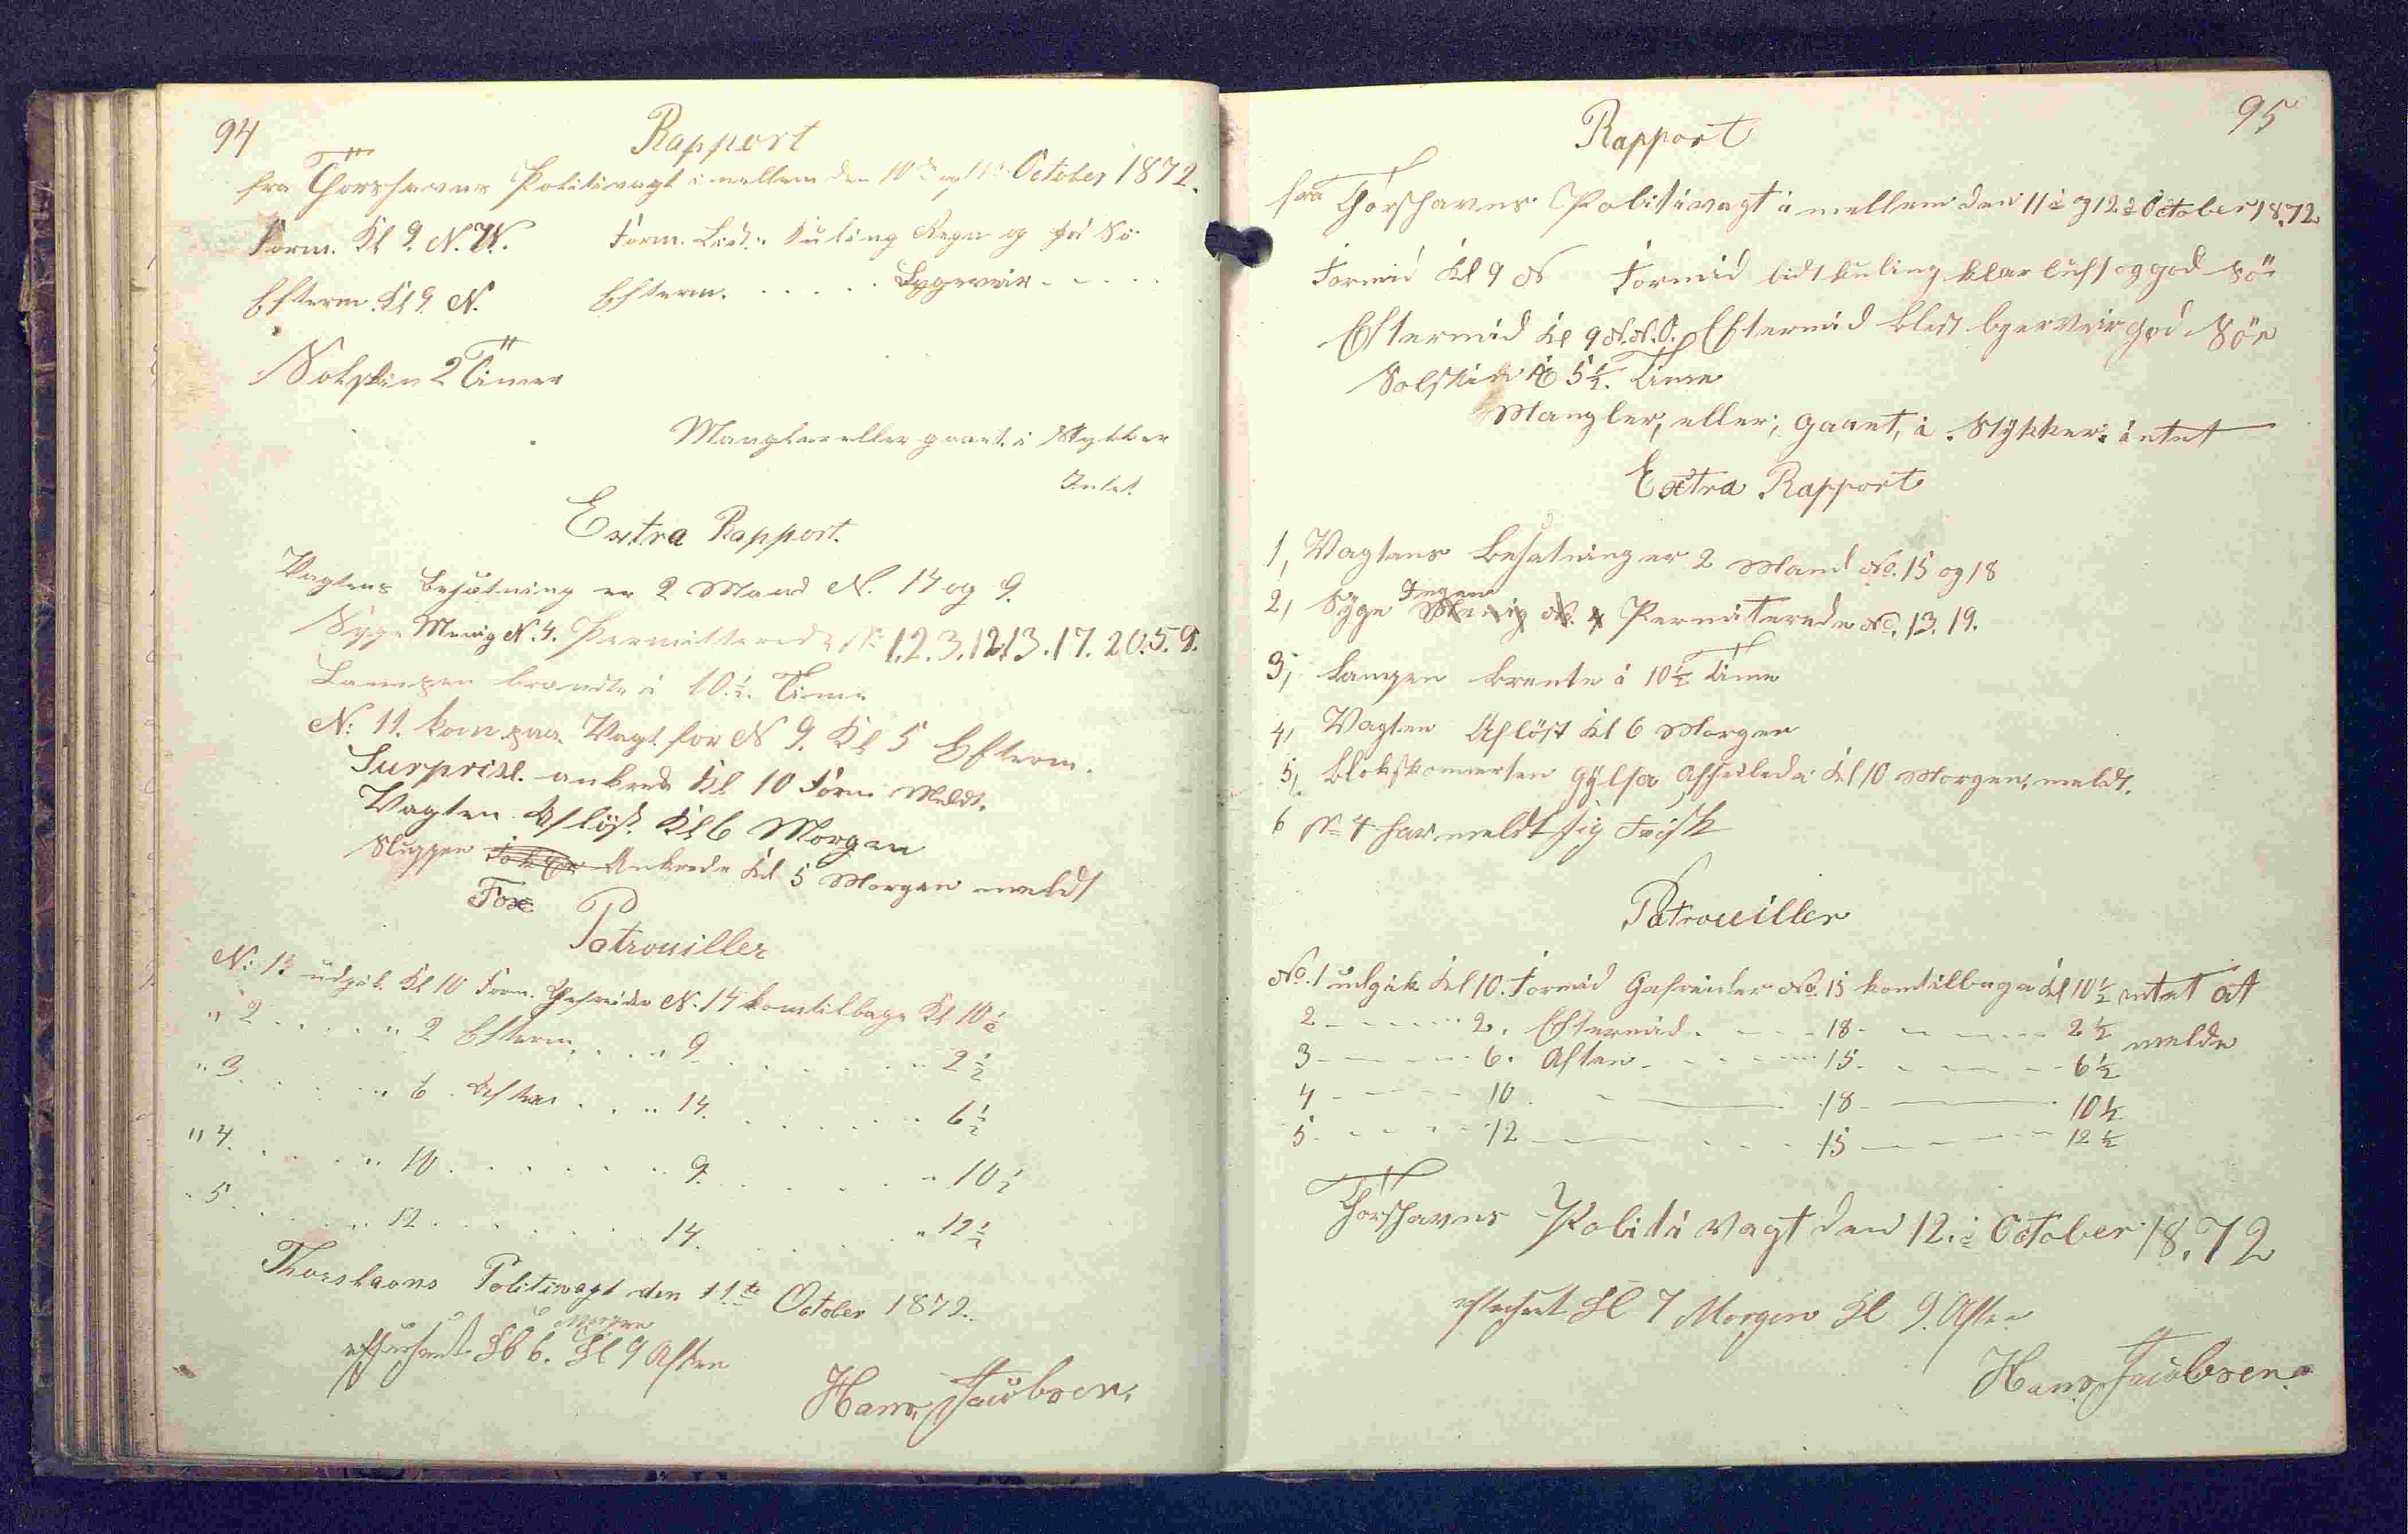 94
Rapport
fra Thorshavns Politivagt i mellem den 10de og 11te October 1872.
Form. Kl 9. N.W. Form. Lidt Kuling Regn og
Efterm. Kl 9. N. Efterm. . . . . .
Solskin 2 Timer
Mangler eller gaaet i Stykker
Intet
Extra Rapport.
Vagtens Besætning er 2 Mand N. 14 og 9.
Syge Menig N. 4. Permitterede No 1.2.3.12.13.17.20.5.8.
Lampen brændte i 10.½. Time
N: 11. kom paa Vagt for N 9. Kl 5 Efterm.
Surprise. ankrede Kl 10 Form Meldt.
Vagten Afløst. Kl 6 Morgen
Sluppen Ankrede Kl 5 Morgen meldt
Fox
Patrouiller
N: 1 udgik. Kl 10 Form. Gefreider N. 14 kom tilbage Kl 10½
" 2 . . . . " 2 Efterm. . . . " 9 . . . . . . . " 2½
" 3 . . . . " 6 . Aften . . . " 14. . . . . . . . " 6½
" 4. . . . . " 10 . . . . . . . " 9. . . . . . . " 10½
" 5 . . . . . " 12 . . . . . . . 14. . . . . . . " 12½
Thorshavns Politivagt den 11te October 1872.
Morgen
Kl 6. Kl 9 Aften
Hans Jacobsen.
95
Rapport
fra Thorshavns Politivagt i mellem den 11te og 12te October 1872
Formid Kl 9 N Formid lidt kuling klar luft og god Sö
Eftermid Kl 9 N.N.O. Eftermid god Sö
Solskin i 5½. Time
Mangler, eller, gaaet, i Stykker: intet
Extra Rapport
1, Vagtens Besætning er 2 Mand No. 15 og 18
Ingen
2, Syge Menig N. 4 Permiterede No. 13. 19.
3, Lampen brente i 10½ Time
4, Vagten Aflöst Kl 6 Morgen
5, Gylfa Affseilede Kl 10 Morgen, meldt.
6 No 4 har meldt sig Frisk
Patrouiller
No. 1 udgik Kl 10. Formid Gefreider No. 15 kom tilbage Kl 10½ intet at
2 - - - - - 2. Eftermid. - - - - 18 - - - - - 2½ melde
3 - - - - - 6. Aften - - - - 15. - - - - - 6½
4 - - - - - 10 - - - - 18 - - - - 10½
5 - - - - - 12 - - - - 15 - - - - 12½
Thorshavns Politi vagt den 12te October 18.72
Kl 7 Morgen Kl 9. Aften
Hans Jacobsen.